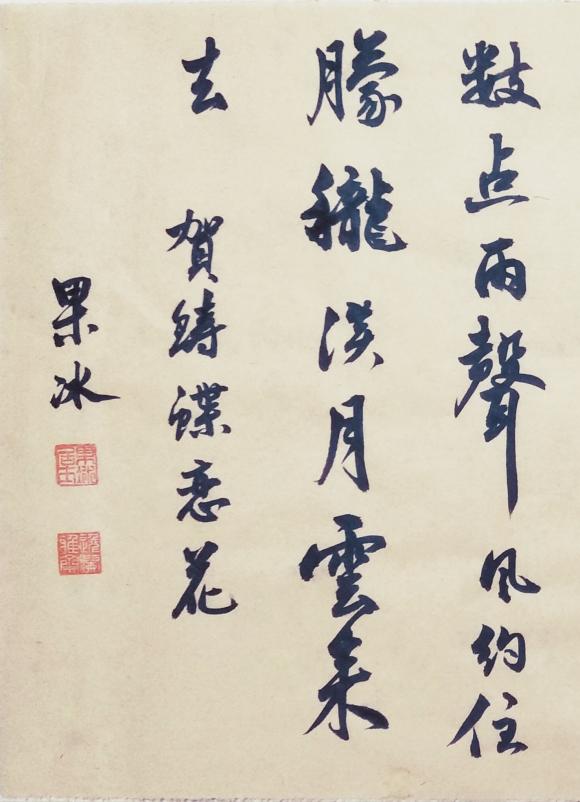 数点雨聲风约住
朦朧淡月雲来
去 賀鋳蝶恋花
果冰